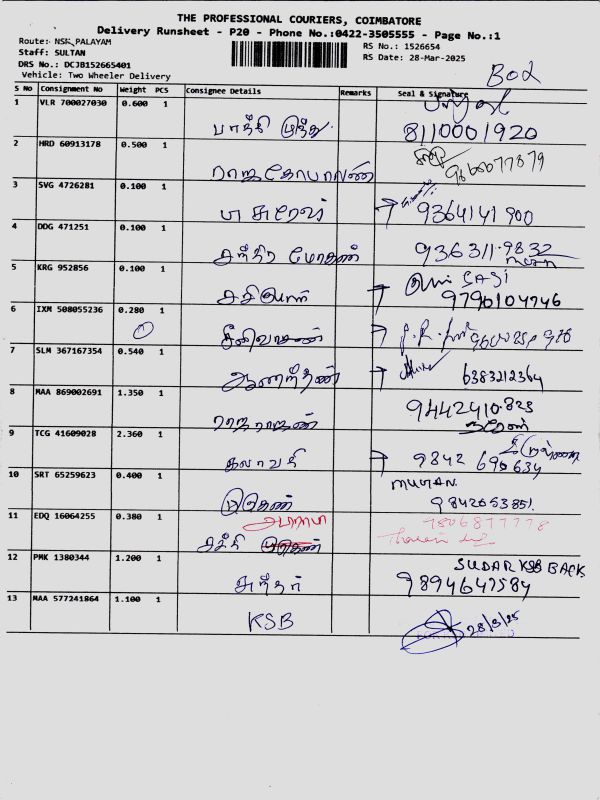 THE PROFESSIONAL COURIERS, COIMBATORE
Delivery Runsheet - P20 - Phone No.:0422-3505555 - Page No.:1
Route: NSR PALAYAM
RS No.: 1526654
Staff: SULTAN
RS Date: 28-Mar-2025
DRS No.: DCJB152665401
Vehicle: Two Wheeler Delivery
S No Consignment No Weight PCS Consignee Details Remarks Seal & Signature
1 VLR 700027030 0.600 1
8110001920
2 HRD 60913178 0.500 1 ராஜகோபாலன்
3 SVG 4726281 0.100 1
9364141900
4 DDG 471251 0.100 1 சந்திர மோகன் 936311.9832
5 KRG 952856 0.100 1 SASI
9790104746
6 IXM 508055236 0.280 1 சீனிவாசன்
7 SLM 367167354 0.540 1 ஆனந்தன் 6383212364
8 MAA 869002691 1.350 1 ராஜராஜன் 9442410.823
9 TCG 41609028 2.360 1 கலாவதி 9842 690634
10 SRT 65259623 0.400 1 முருகன் 9842053851.
11 EDQ 16064255 0.380 1 7806877778
12 PMK 1380344 1.200 1 SUDAR KSB BACK
9894647584
13 MAA 577241864 1.100 1 KSB 28/3/25